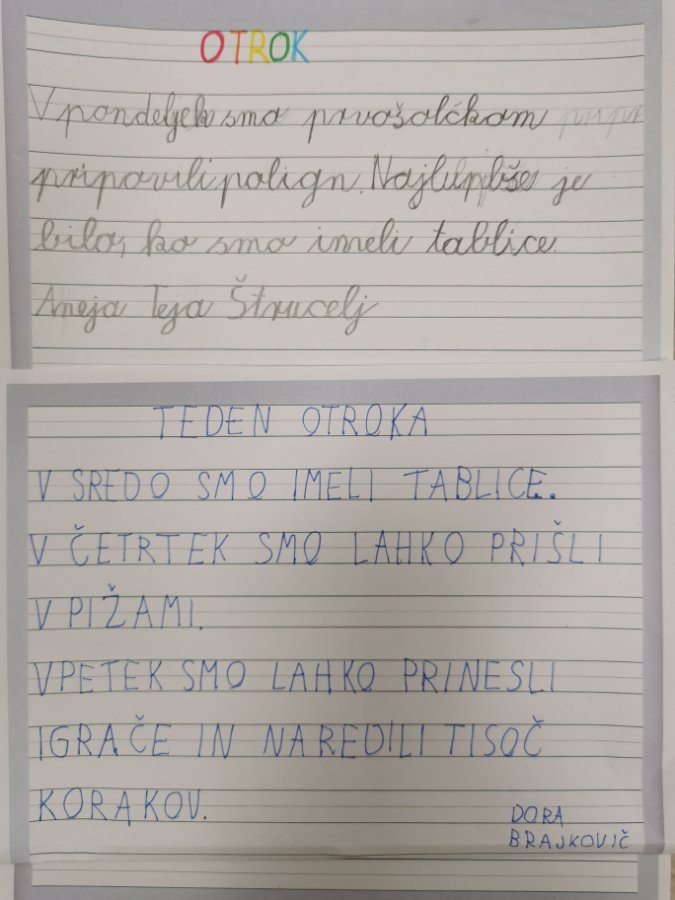 OTROK
V pondeljek smo prvošolčkom pripr
pripavili polign. Najlepše je
bilo, ko smo imeli tablice.
Aneja Teja Štrucelj
TEDEN OTROKA
V SREDO SMO IMELI TABLICE.
V ČETRTEK SMO LAHKO PRIŠLI
V PIŽAMI.
V PETEK SMO LAHKO PRINESLI
IGRAČE IN NAREDILI TISOČ
KORAKOV.
DORA
BRAJKOVIČ